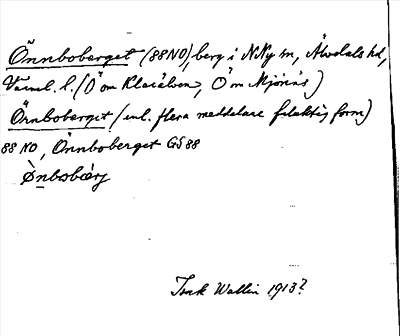 Önnboberget (88NO), berg i N Ny sn, Älvdals hd,
Värml. l. (Ö om Klarälven, Ö om Mjönäs)
Önnboberget (enl. flera meddelare felaktig form)
88 NO, Önnboberget GS 88
Isak Wallin 1913?